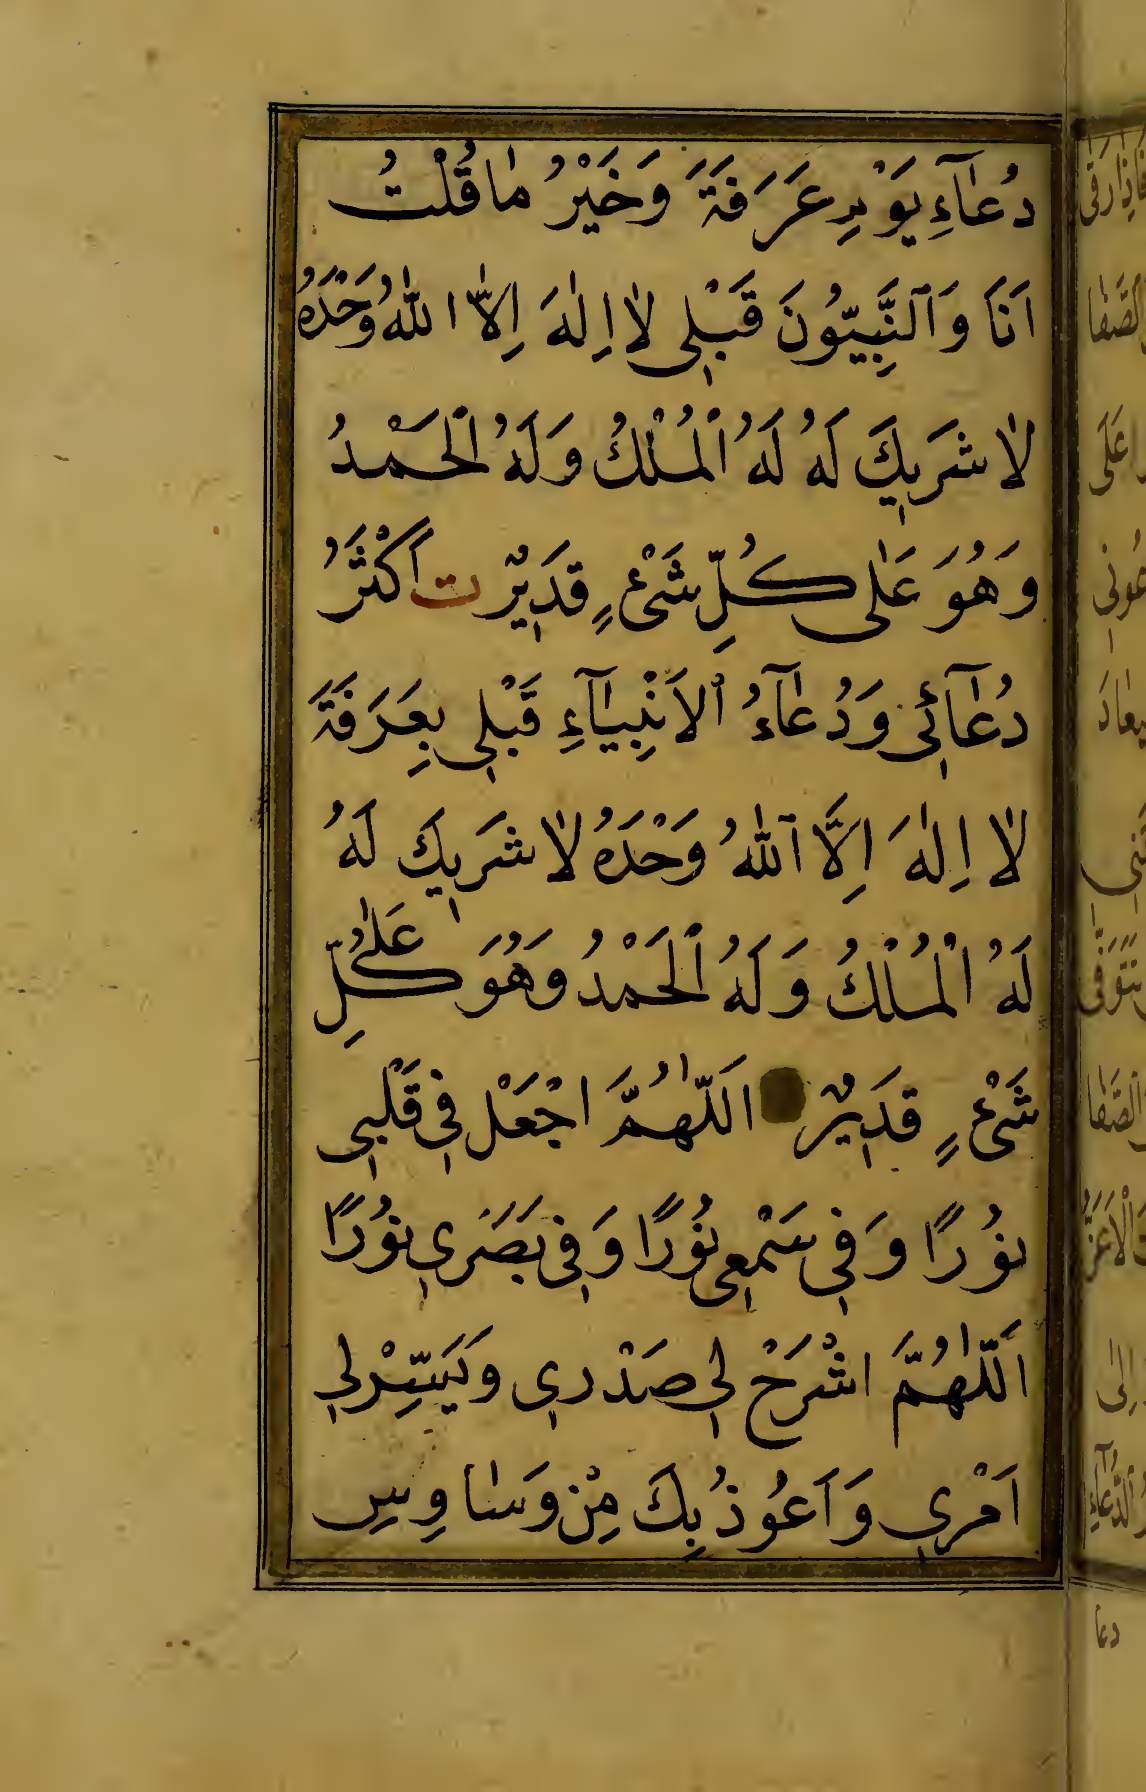 دُعَآءِ يَوْمِ عَرَفَةَ وَخَيْرُ مٰا قُلْتُ
اَنَا وَالنَّبِيّوُنَ قَبْلِي لٰا اِلٰهَ اِلاّٰ اللهُ وَحْدَهُ
لٰا شَرِيكَ لَهُ لَهُ الْمُلْكُ وَلَهُ الْحَمْدُ
وَهُوَ عَلٰى كُلِّ شَيْءٍ قَدِيرٌ ت اَكْثَرُ
دُعٰآئِي وَدُعٰآءُ الْاَنْبِيٰآءِ قَبْلِي بِعَرَفَةَ
لٰا اِلٰهَ اِلَّا اللهُ وَحْدَهُ لٰا شَرِيكَ لَهُ
لَهُ الْمُلْكُ وَلَهُ الْحَمْدُ وَهُوَ عَلٰى كُلِّ
شَيْءٍ قَدِيرٌ اَللّٰهُمَّ اجْعَلْ فِي قَلْبِي
نُورًا وَفِي سَمْعِي نُوُرًا وَفِي بَصَرِي نُوُرًا
اَللّٰهُمَّ اشْرَحْ لِي صَدْرِي وَيَسِّرْ لِي
اَمْرِي وَاَعُوذُ بِكَ مِنْ وَسٰاوِسِ
دعا